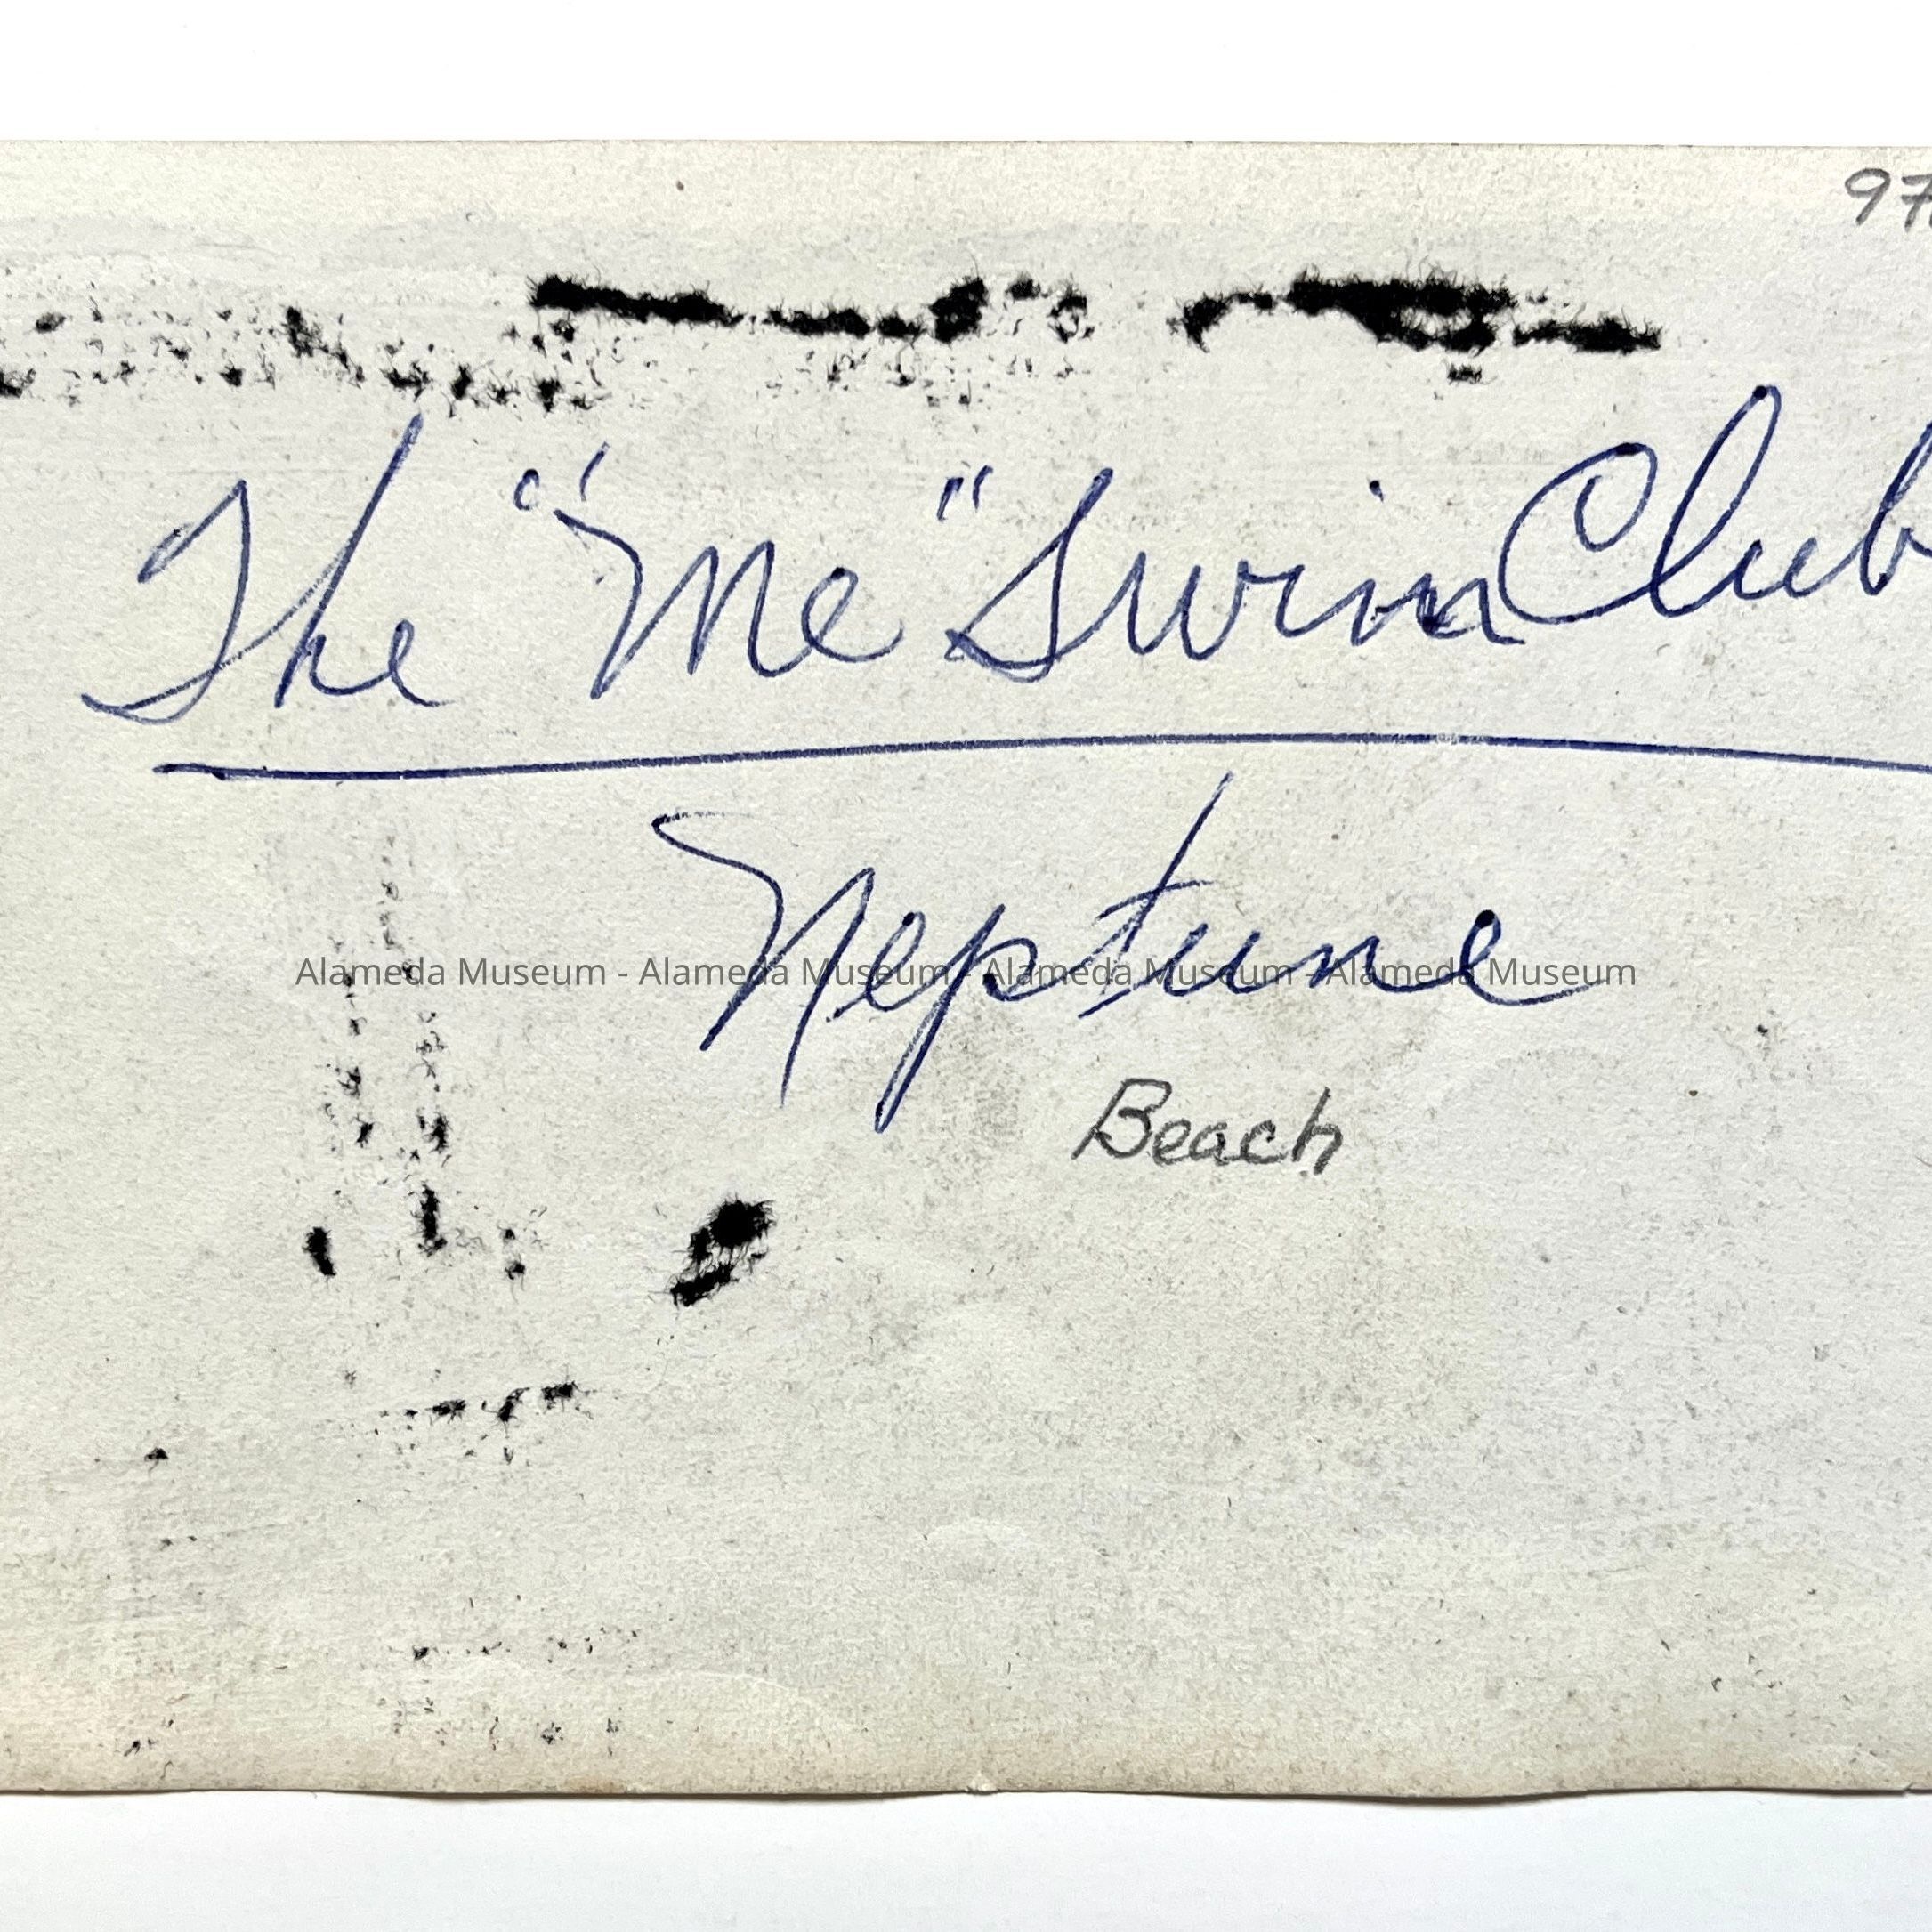 97
The "Me" Swim Club
Neptune
Alameda Museum - Alameda Museum - Alameda Museum - Alameda Museum
Beach